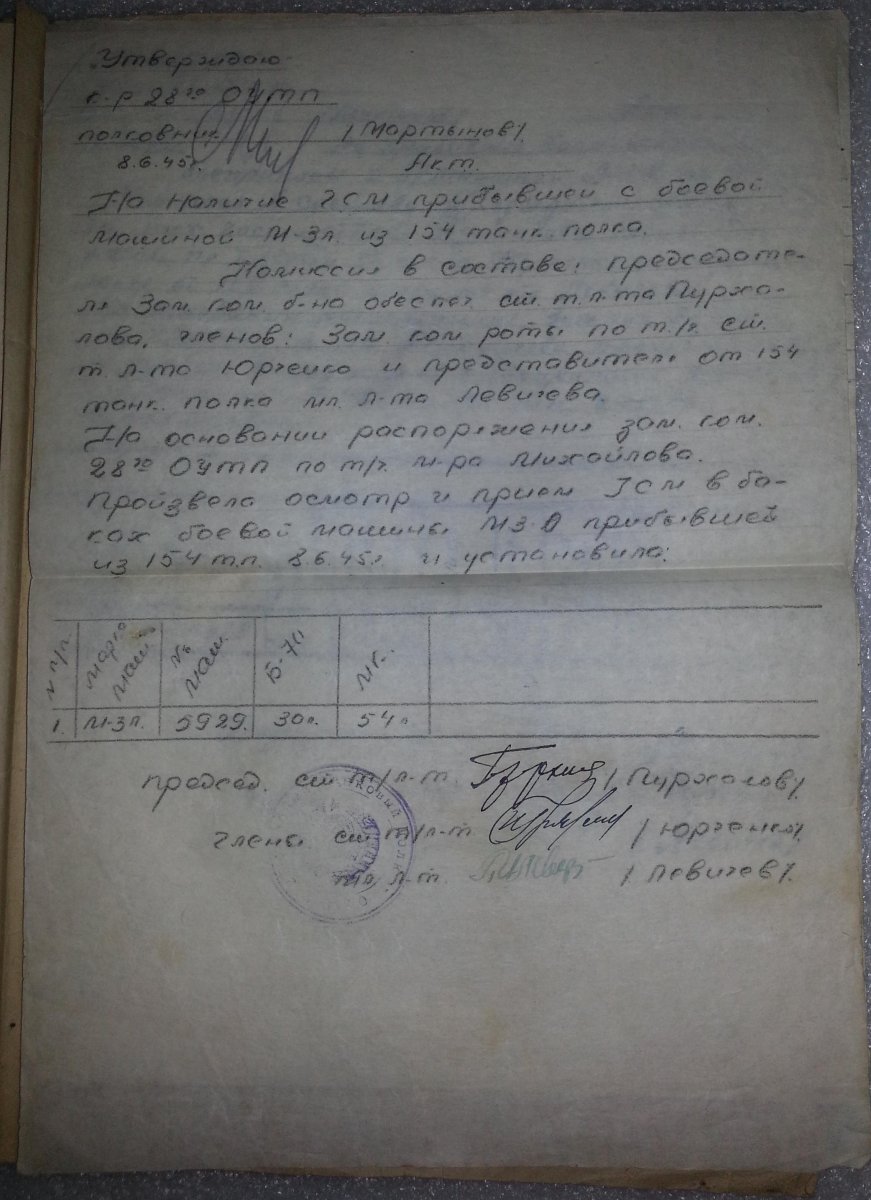 „Утверждаю
к-р 28го ОУТП
полковник /Мартынов/.
8.6.45г. Акт.
На наличие ГСМ прибывшей с боевой
машиной М-3л. из 154 танк. полка.
Комиссия в составе: председате-
ля Зам. ком. б-на обеспеч. ст. т. л-та Пурха-
лова, членов: Зам. ком роты по т/ч. ст.
т. л-та Юрченко и представителя от 154
танк. полка мл. л-та Левичева.
На основании распоряжения зам. ком.
28го ОУТП по т/ч. м-ра Михайлова.
Произвела осмотр и прием ГСМ в ба-
ках боевой машины М3-л прибывшей
из 154 т.п. 8.6.45г. и установила:
№ п/п. марка маш. № маш. Б-70 МК.
1. М-3л. 5929. 30л. 54л
Председ. ст т/л-т. /Пурхалов/.
члены ст т/л-т. /Юрченко/.
мл. л-т. /Левичев/.